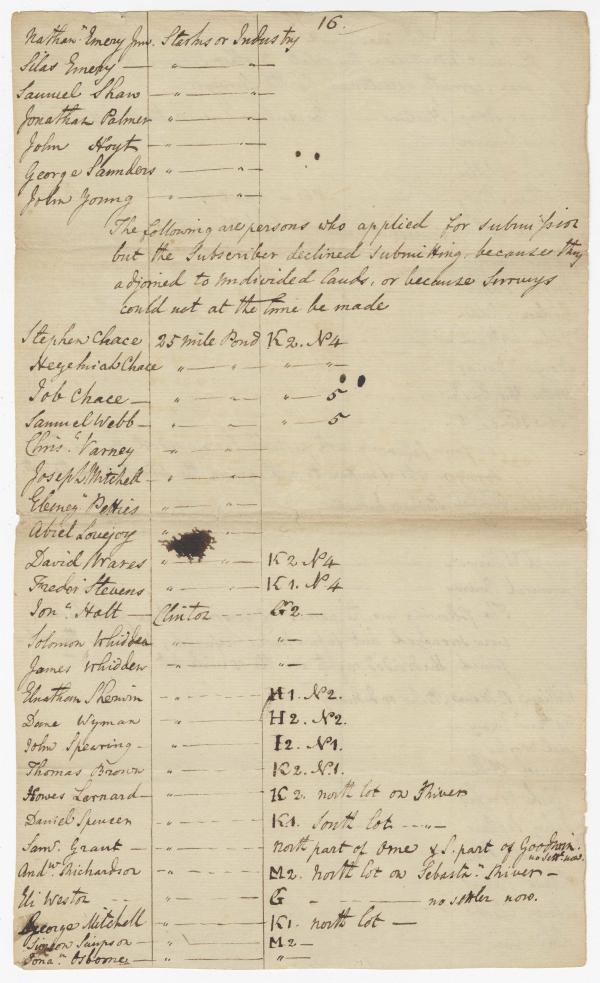 16.
Nathanl. Emery Jnr. Starks or Industry
Silas Emery — " — " —
Samuel Shaw — " — " —
Jonathan Palmer " — " —
John Hoyt — " — " —
George Saunders " — " —
John Young " — " —
The following are persons who applied for submission
but the Subscriber declined submitting, because they
adjoined to undivided lands, or because Surveys
could not at the time be made
Stephen Chace 25 mile Pond K2. N4
Hezekiah Chace " — " — " — " —
Job Chace — " — " — " — 5
Samuel Webb — " — " — " — 5
Chrisr. Varney " — " —
Joseph Mitchell — " — " —
Ebenezr. Petties " — " —
Abiel Lovejoy " — " —
David Wares " — " — K2 N4
Fredk. Stevens " — " — K1. N4
Jona. Holt — Clinton G2. —
Solomon Whidden " — " —
James Whidden " — " —
Elnathan Sherwin " — H1. N2.
Dane Wyman " — H2. N2.
John Spearing - " — I2. N1.
Thomas Brown " — K2. N1.
Howes Larnard — " — K2. north lot on River
Daniel Spencer " — K1. South lot - - " -
Saml. Grant — " — north part of Orne & S. part of Goodwin.
no settr. now.
Andw. Richardson " — M2. North lot on Sebastn. River —
Eli Weston " — G — no settler now.
George Mitchell " — K1. north lot —
Simeon Simpson — " — M2 —
Jonan. Osborne — " — " —